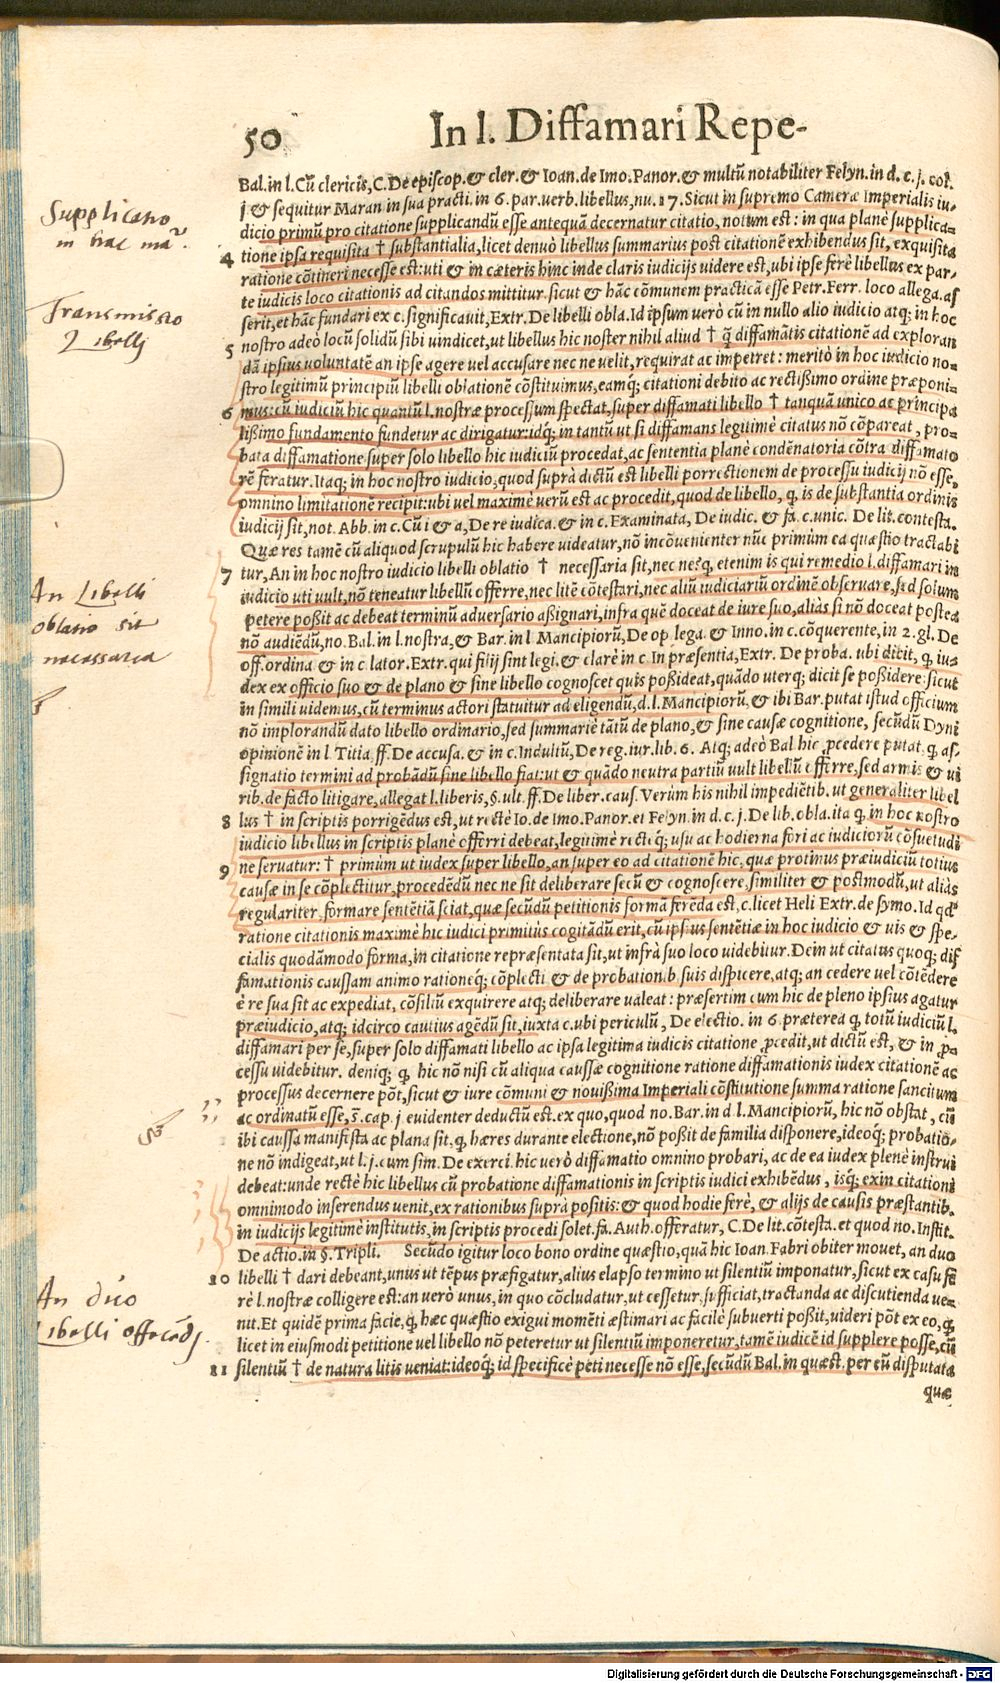 50
In l. Diffamari Repe-
Bal. in l. Cū clericis, C. De episcop. & cler. & Ioan. de Imo. Panor. & multū notabiliter Felyn. in d. c. j. col.
j & sequitur Maran in sua practi. in 6. par. uerb. libellus, nu. 17. Sicut in supremo Cameræ Imperialis iu-
dicio primū pro citatione supplicandū esse antequā decernatur citatio, notum est: in qua planè supplica-
4 tione ipsa requisita † substantialia, licet denuò libellus summarius post citationē exhibendus sit, exquisita
ratione cōtineri necesse est: uti & in cæteris hinc inde claris iudicijs uidere est, ubi ipse ferè libellus ex par-
te iudicis loco citationis ad citandos mittitur. sicut & hāc cōmunem practicā esse Petr. Ferr. loco allega. as
serit, et hāc fundari ex c. significauit, Extr. De libelli obla. Id ipsum uerò cū in nullo alio iudicio atq; in hoc
nostro adeò locū solidū sibi uindicet, ut libellus hic noster nihil aliud † q̄ diffamātis citationē ad exploran
5 dā ipsius uoluntatē an ipse agere uel accusare nec ne uelit, requirat ac impetret: meritò in hoc iudicio no-
stro legitimū principiū libelli oblationē cōstituimus, eamq́; citationi debito ac rectißimo ordine præponi-
6 mus: cū iudiciū hic quantū l. nostræ processum spectat, super diffamati libello † tanquā unico ac principa
lißimo fundamento fundetur ac dirigatur: idq́; in tantū ut si diffamans legitimè citatus nō cōpareat, pro-
bata diffamatione super solo libello hic iudiciū procedat, ac sententia planè condēnatoria cōtra diffamato
rē feratur. Itaq; in hoc nostro iudicio, quod suprà dictū est libelli porrectionem de processu iudicij nō esse,
omnino limitationē recipit: ubi uel maximè uerū est ac procedit, quod de libello, q̨ is de substantia ordinis
iudicij sit, not. Abb. in c. Cū i & a, De re iudica. & in c. Examinata, De iudic. & fa. c. unic. De lit. contesta.
Quæres tamē cū aliquod scrupulū hic habere uideatur, nō incōuenienter nūc primùm ea quæstio tractabi
7 tur, An in hoc nostro iudicio libelli oblatio † necessaria sit, nec ne? q̨ etenim is qui remedio l. diffamari in
iudicio uti uult, nō teneatur libellū offerre, nec litē cōtestari, nec aliū iudiciariū ordinē obseruare, sed solum
petere poßit ac debeat terminū aduersario aßignari, infra quē doceat de iure suo, aliàs si nō doceat postea
nō audiēdū, no. Bal. in l. nostra, & Bar. in l Mancipiorū, De op. lega. & Inno. in c. cōquerente, in 2. gl. De
off. ordina & in c. lator. Extr. qui filij sint legi. & clarè in c. In præsentia, Extr. De proba. ubi dicit, q̨ iu-
dex ex officio suo & de plano & sine libello cognoscet quis poßideat, quādo uterq; dicit se poßidere: sicut
in simili uidemus, cū terminus actori statuitur ad eligendū, d. l. Mancipiorū, & ibi Bar. putat istud officium
nō implorandū dato libello ordinario, sed summariè tātū de plano, & sine causæ cognitione, secūdū Dyni
opinionē in l Titia, ff. De accusa. & in c. Indultū, De reg. iur. lib. 6. Atq; adeò Bal hic ꝓcedere putat, q̨ as,
signatio termini ad probādū sine libello fiat: ut & quādo neutra partiū uult libellū offerre, sed armis & ui
rib. de facto litigare, allegat l. liberis, §. ult. ff. De liber. caus. Verùm his nihil impediētib. ut generaliter libel
8 lus † in scriptis porrigēdus est, ut rectè Io. de Imo. Panor. et Felyn. in d. c. j. De lib. obla. ita q̨ in hoc nostro
iudicio libellus in scriptis planè offerri debeat, legitimè rectèq́; usu ac hodierna fori ac iudiciorū cōsuetudi
9 ne seruatur: † primùm ut iudex super libello, an super eo ad citationē hic, quæ protinus præiudiciū totius
causæ in se cōplectitur, procedēdū nec ne sit deliberare secū & cognoscere, similiter & postmodū, ut aliàs
regulariter, formare sentētiā sciat, quæ secūdū petitionis formā ferēda est, c. licet Heli Extr. de symo. Id qd'
ratione citationis maximè hic iudici primitùs cogitādū erit, cū ipsius sentētiæ in hoc iudicio & uis & spe-
cialis quodāmodo forma, in citatione repræsentata sit, ut infrà suo loco uidebitur. Dein ut citatus quoq; dif
famationis caussam animo rationeq́; cōplecti & de probationib. suis dispicere, atq; an cedere uel cōtēdere
è re sua sit ac expediat, cōsiliū exquirere atq; deliberare ualeat: præsertim cum hic de pleno ipsius agatur
præiudicio, atq; idcirco cautius agēdū sit, iuxta c. ubi periculū, De electio. in 6. præterea q̨ totū iudiciū l.
diffamari per se, super solo diffamati libello ac ipsa legitima iudicis citatione ꝓcedit, ut dictū est, & in ꝓ-
cessu uidebitur. deniq; q̨ hic nō nisi cū aliqua caussæ cognitione ratione diffamationis iudex citationē ac
processus decernere pōt, sicut & iure cōmuni & nouißima Imperiali cōstitutione summa ratione sancitum
ac ordinatū esse, s̄. cap. j. euidenter deductū est. ex quo, quod no. Bar. in d l. Mancipiorū, hic nō obstat, cū
ibi caussa manifesta ac plana sit, q̨ hæres durante electione, nō poßit de familia disponere, ideoq́; probatio-
ne nō indigeat, ut l. j. cum sim. De exerci. hic uerò diffamatio omnino probari, ac de ea iudex plenè instrui
debeat: unde rectè hic libellus cū probatione diffamationis in scriptis iudici exhibēdus, isq́; exin citationi
omnimodo inserendus uenit, ex rationibus suprà positis: & quod hodie ferè, & alijs de causis præstantib.
in iudicijs legitimè institutis, in scriptis procedi solet. fa. Auth. offeratur, C. De lit. cōtesta. et quod no. Instit.
De actio. in §. Tripli. Secūdo igitur loco bono ordine quæstio, quā hic Ioan. Fabri obiter mouet, an duo
10 libelli † dari debeant, unus ut tēpus præfigatur, alius elapso termino ut silentiū imponatur, sicut ex casu fe
rè l. nostræ colligere est: an uerò unus, in quo cōcludatur, ut cessetur, sufficiat, tractanda ac discutienda ue-
nit. Et quidē prima facie, q̨ hæc quæstio exigui momēti æstimari ac facilè subuerti poßit, uideri pōt ex eo, q̨
licet in eiusmodi petitione uel libello nō peteretur ut silentiū imponeretur, tamē iudicē id supplere posse, cū
11 silentiū † de natura litis ueniat: ideoq́; id specificè peti necesse nō esse, secūdū Bal. in quæst. per eū disputata
quæ
Supplicatio
in hac ma.
Transmissio
Libelli
An Libelli
oblatio sit
necessaria
An duo
Libelli offerēdj.
Digitalisierung gefördert durch die Deutsche Forschungsgemeinschaft - DFG